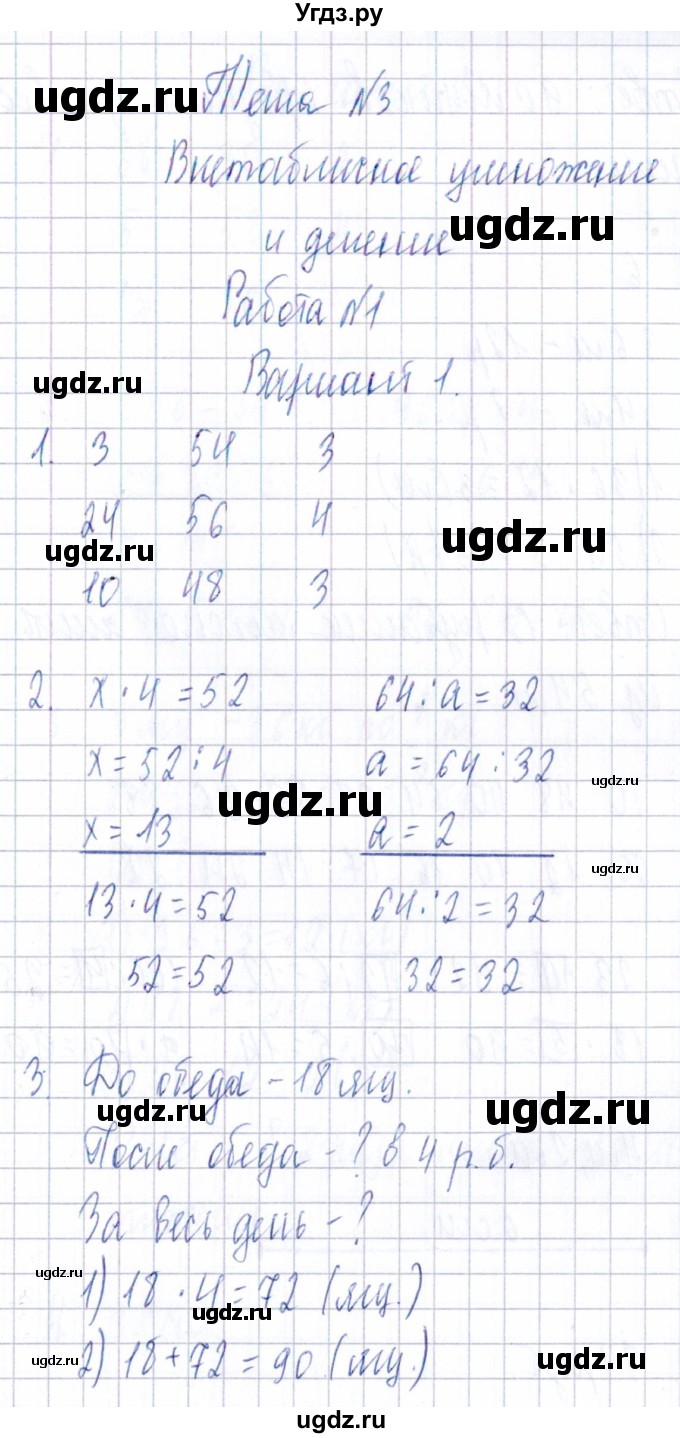 Угдз.ру
ugdz.ru Тема №3
Внетабличное умножение
ugdz.ru
и деление
Работа №1
ugdz.ru Вариант 1.
1. 3 54 3
24 56 4
ugdz.ru ugdz.ru
10 48 3
2. x · 4 = 52 64 : a = 32
x = 52 : 4 a = 64 : 32 ugdz.ru
ugdz.ru
x = 13 a = 2
ugdz.ru
13 · 4 = 52 64 : 2 = 32
52 = 52 32 = 32
3. До обеда – 18 ящ.
ugdz.ru ugdz.ru
После обеда – ? в 4 р. б.
За весь день – ?
ugdz.ru 1) 18 · 4 = 72 (ящ.)
ugdz.ru
ugdz.ru 2) 18 + 72 = 90 (ящ.) ugdz.ru
ugdz.ru